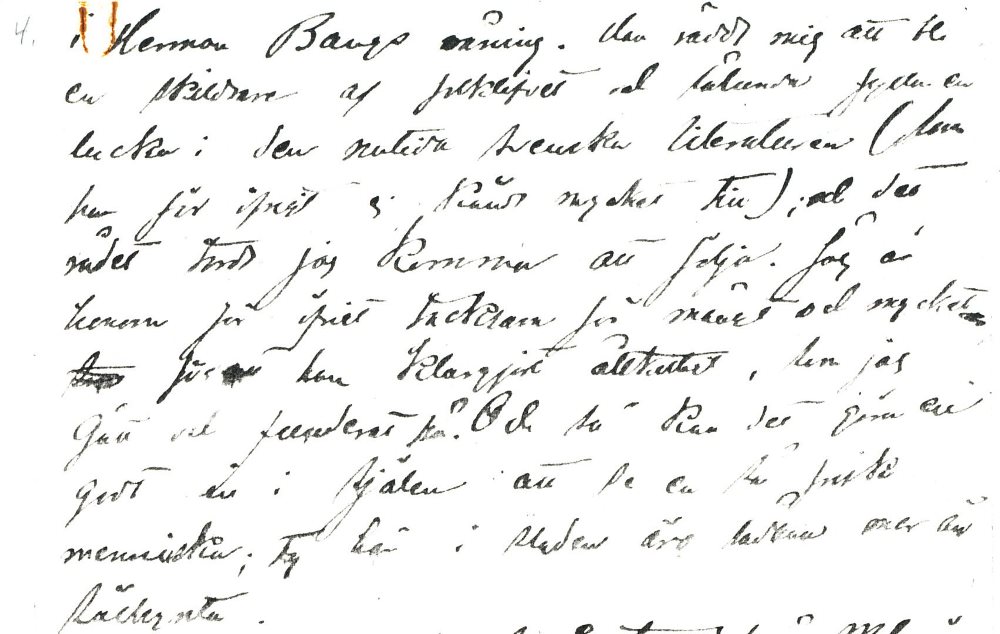 4.
i Herman Bangs våning. Han rådt mig att bli
en skildrare af folklifvet och sålunda fylla en
lucka i den nutida svenska literaturen (som
han för öfrigt ej känt mycket till); och det
rådet torde jag komma att följa. Jag är
honom för öfrigt tacksam för mångt och mycket
för att han klargjort åtskilligt, som jag
gått och funderat på. Och så kan det göra en
godt in i själen att se en så frisk
menniska; ty här i staden äro sådana mer än
sällsynta.